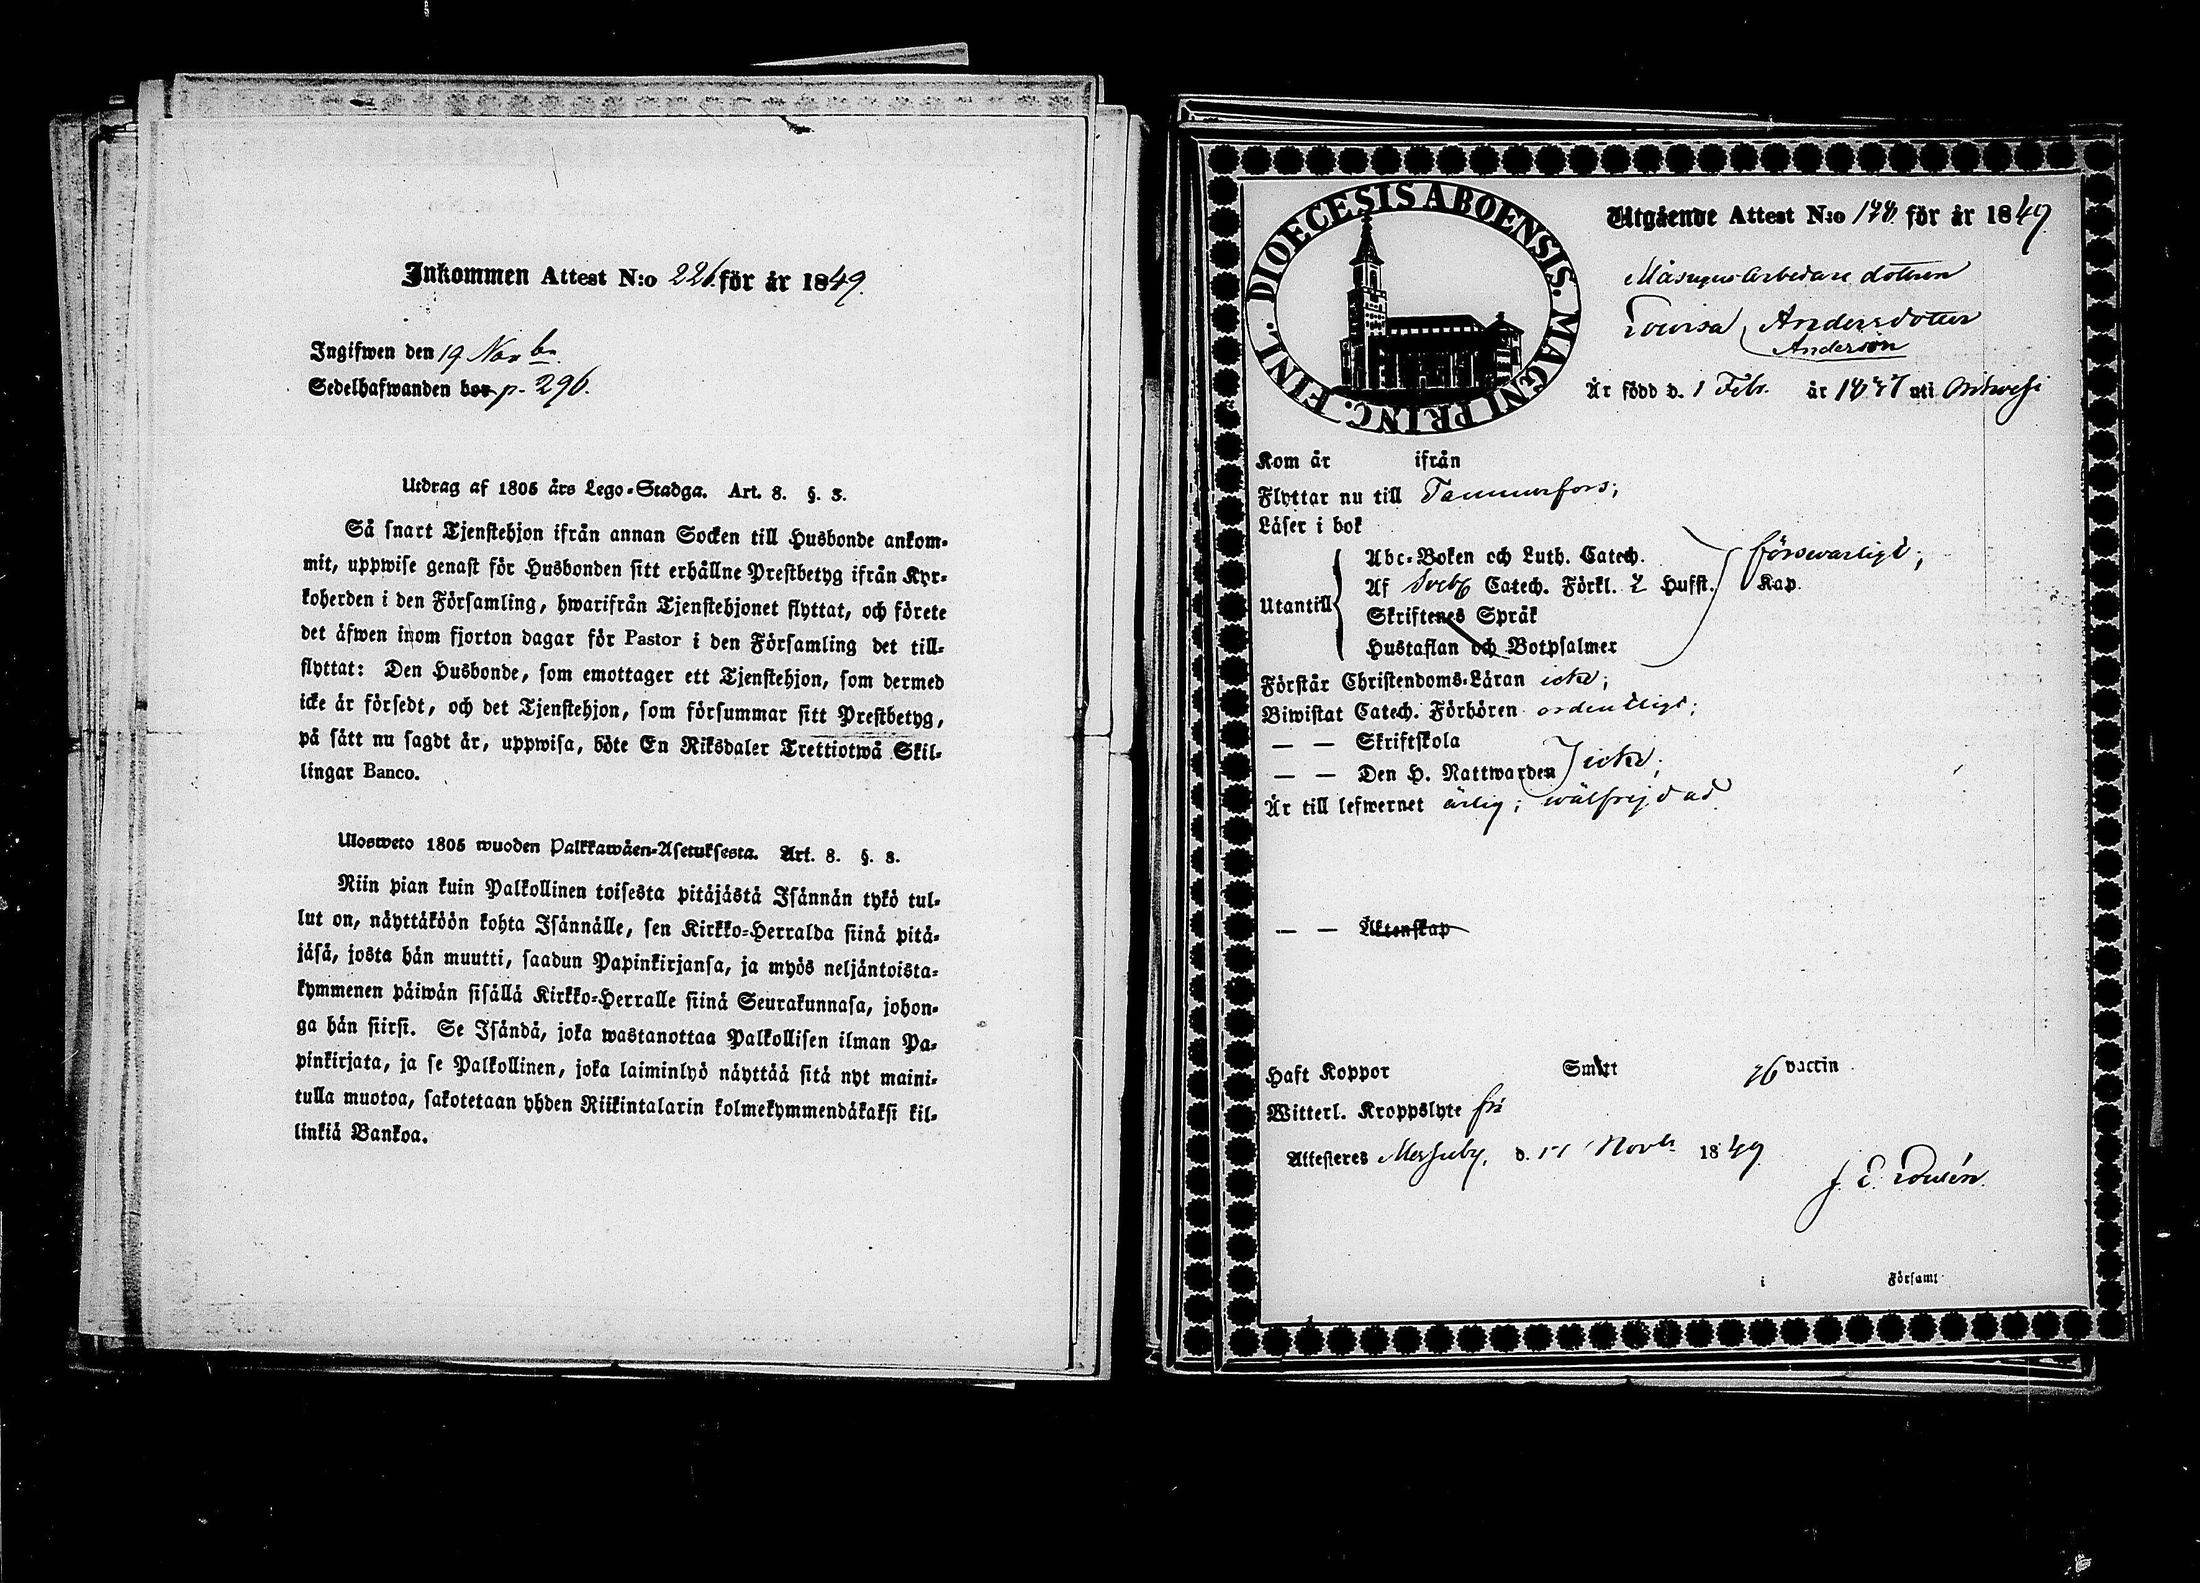 Inkommen Attest N:o 226. för år 1849.
Ingifwen den 19 Novbr.
Sedelhafwanden bor p. 296.
Utdrag af 1805 års Lego-Stadga. Art. 8. §. 3.
Så snart Tjenstehjon ifrån annan Socken till Husbonde ankom-
mit, uppwise genast för Husbonden sitt erhållne Prestbetyg ifrån Kyr-
koherden i den Församling, hwarifrån Tjenstehjonet flyttat, och förete
det äfwen inom fjorton dagar för Pastor i den Församling det till-
flyttat: Den Husbonde, som emottager ett Tjenstehjon, som dermed
icke är försedt, och det Tjenstehjon, som försummar sitt Prestbetyg,
på sätt nu sagdt är, uppwisa, böte En Riksdaler Trettiotwå Skil-
lingar Banco.
Ulosweto 1805 wuoden Palkkawäen-Asetuksesta. Art. 8. §. 3.
Niin pian kuin Palkollinen toisesta pitäjästä Isännän tykö tul-
lut on, näyttäköön kohta Isännälle, sen Kirkko-Herralda siinä pitä-
jäsä, josta hän muutti, saadun Papinkirjansa, ja myös neljäntoista-
kymmenen päiwän sisällä Kirkko-Herralle siinä Seurakunnasa, johon-
ga hän siirsi. Se Isändä, joka wastanottaa Palkollisen ilman Pa-
pinkirjata, ja se Palkollinen, joka laiminlyö näyttää sitä nyt maini-
tulla muotoa, sakotetaan yhden Riikintalarin kolmekymmendäkaksi kil-
linkiä Bankoa.
DIOECESIS ABOENSIS. MAGNI PRINC. FINL.
Utgående Attest N:o 178 för år 1849.
Masugns Arbetare dottren
Lovisa Andersdotter
Anderson
Är född d. 1 Febr. år 18 uti
Kom år ifrån
Flyttar nu till Tammerfors;
Läser i bok
Abc-Boken och Luth. Catech. försvarligt;
Utantill Af Sveb Catech. Förkl. 2 Hufst. Kap.
Skriftenes Språk
Hustaflan och Botpsalmer
Förstår Christendoms-Läran icke;
Biwistat Catech. Förhören ordentligt;
— — Skriftskola
— — Den H. Nattwarden icke;
Är till lefwernet ärlig; wälfrejdad
— — Äktenskap
Haft Koppor Smitt vaccin
Witterl. Kroppslyte fri
Attesteres d. 17 Novbr 1849
i Församl.